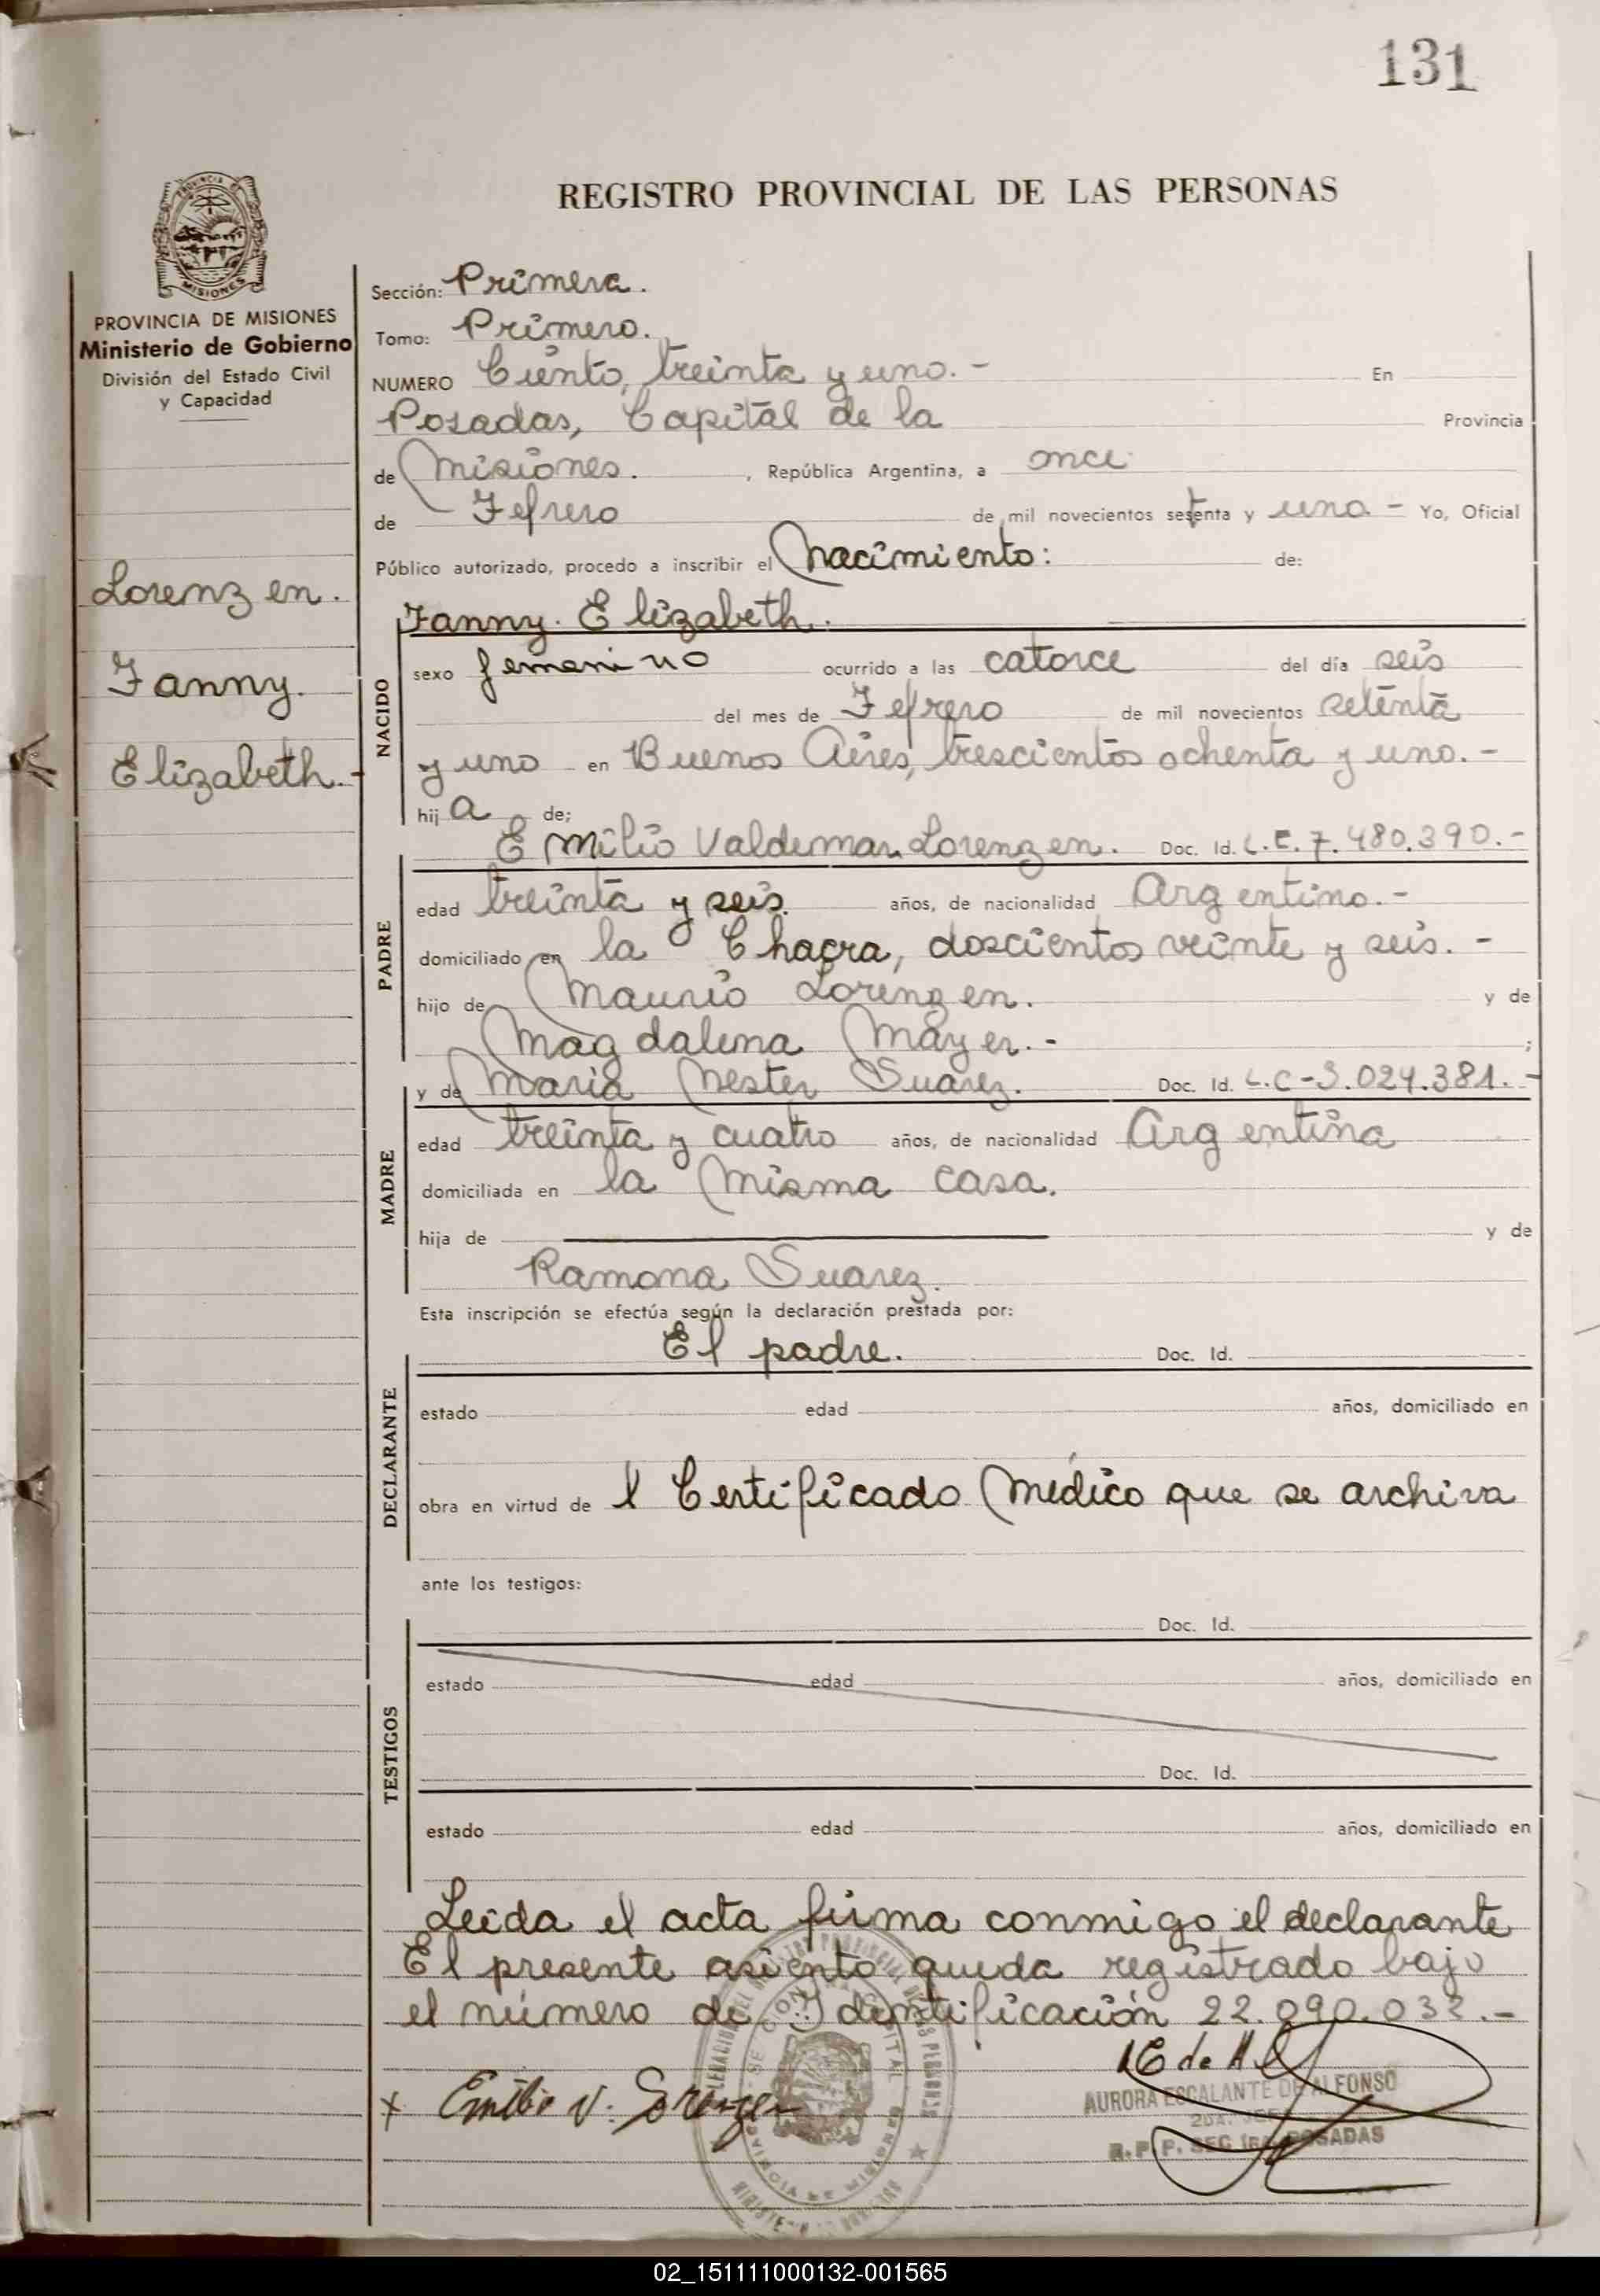 131
REGISTRO PROVINCIAL DE LAS PERSONAS
MISIONES
PROVINCIA DE MISIONES
Ministerio de Gobierno
División del Estado Civil
y Capacidad
Lorenzen.
Fanny.
Elizabeth.-
Sección: Primera.
Tomo: Primero.
NUMERO Ciento, treinta y uno.- En
Posadas, Capital de la Provincia
de Misiones. , República Argentina, a once
de Fefrero de mil novecientos setenta y uno - Yo, Oficial
Público autorizado, procedo a inscribir el Nacimiento: de:
NACIDO
Fanny. Elizabeth.
sexo femenino ocurrido a las catorce del día seis
del mes de Fefrero de mil novecientos setenta
y uno en Buenos Aires, trescientos ochenta y uno.-
hija de;
PADRE
Emilio Valdemar Lorenzen. Doc. Id. L.E. 7.480.390.-
edad treinta y seis. años, de nacionalidad Argentino.-
domiciliado en la Chacra, doscientos veinte y seis.-
hijo de Maurio Lorenzen. y de
Magdalena Mayer.- ;
MADRE
y de Maria Nester Suarez. Doc. Id. L.C-3.024.381.-
edad treinta y cuatro años, de nacionalidad Argentina
domiciliada en la Misma casa.
hija de y de
Ramona Suarez.
Esta inscripción se efectúa según la declaración prestada por:
DECLARANTE
El padre. Doc. Id.
estado edad años, domiciliado en
obra en virtud de l Certificado Médico que se archiva
ante los testigos:
TESTIGOS
Doc. Id.
estado edad años, domiciliado en
Doc. Id.
estado edad años, domiciliado en
Leida el acta firma conmigo el declarante
El presente asiento queda registrado bajo
el número de Identificación 22.090.032.-
x Emilio V. Lorenzen
AURORA ESCALANTE DE ALFONSO
2DA. JEFE
R. P. P. SEC 1RA. POSADAS
02_151111000132-001565